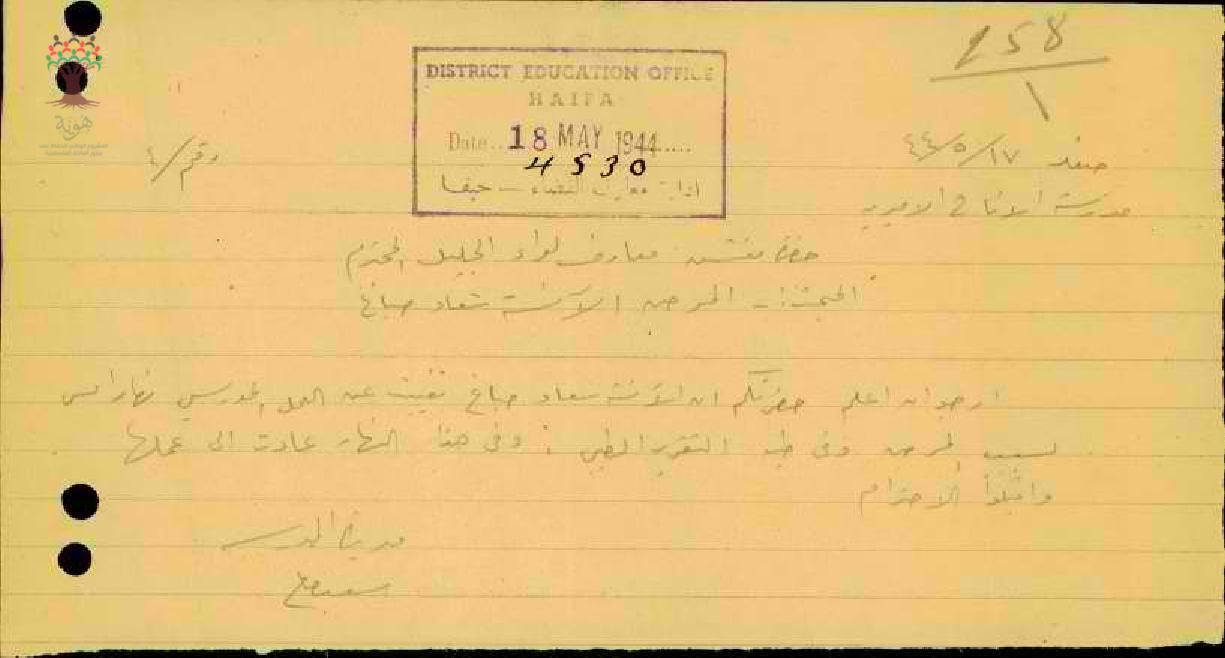 158
1
DISTRICT EDUCATION OFFICE
HAIFA
Date.. 18 MAY 1944.....
4530
ادارة معارف القضاء – حيفا
صفد ١٧/٥/٤٤
رقم/٤
مدرسة الاناث الاميرية
حضرة مفتش معارف لواء الجليل المحترم
المبحث: – الآنسة سعاد صباغ
ارجو ان اعلم حضرتكم ان الآنسة سعاد صباغ تغيبت عن العمل المدرسي نهار امس
بسبب المرض وفي طيه التقرير الطبي . وفي هذا النهار عادت الى عملها .
واقبلوا الاحترام
مديرة المدرسة
هوية